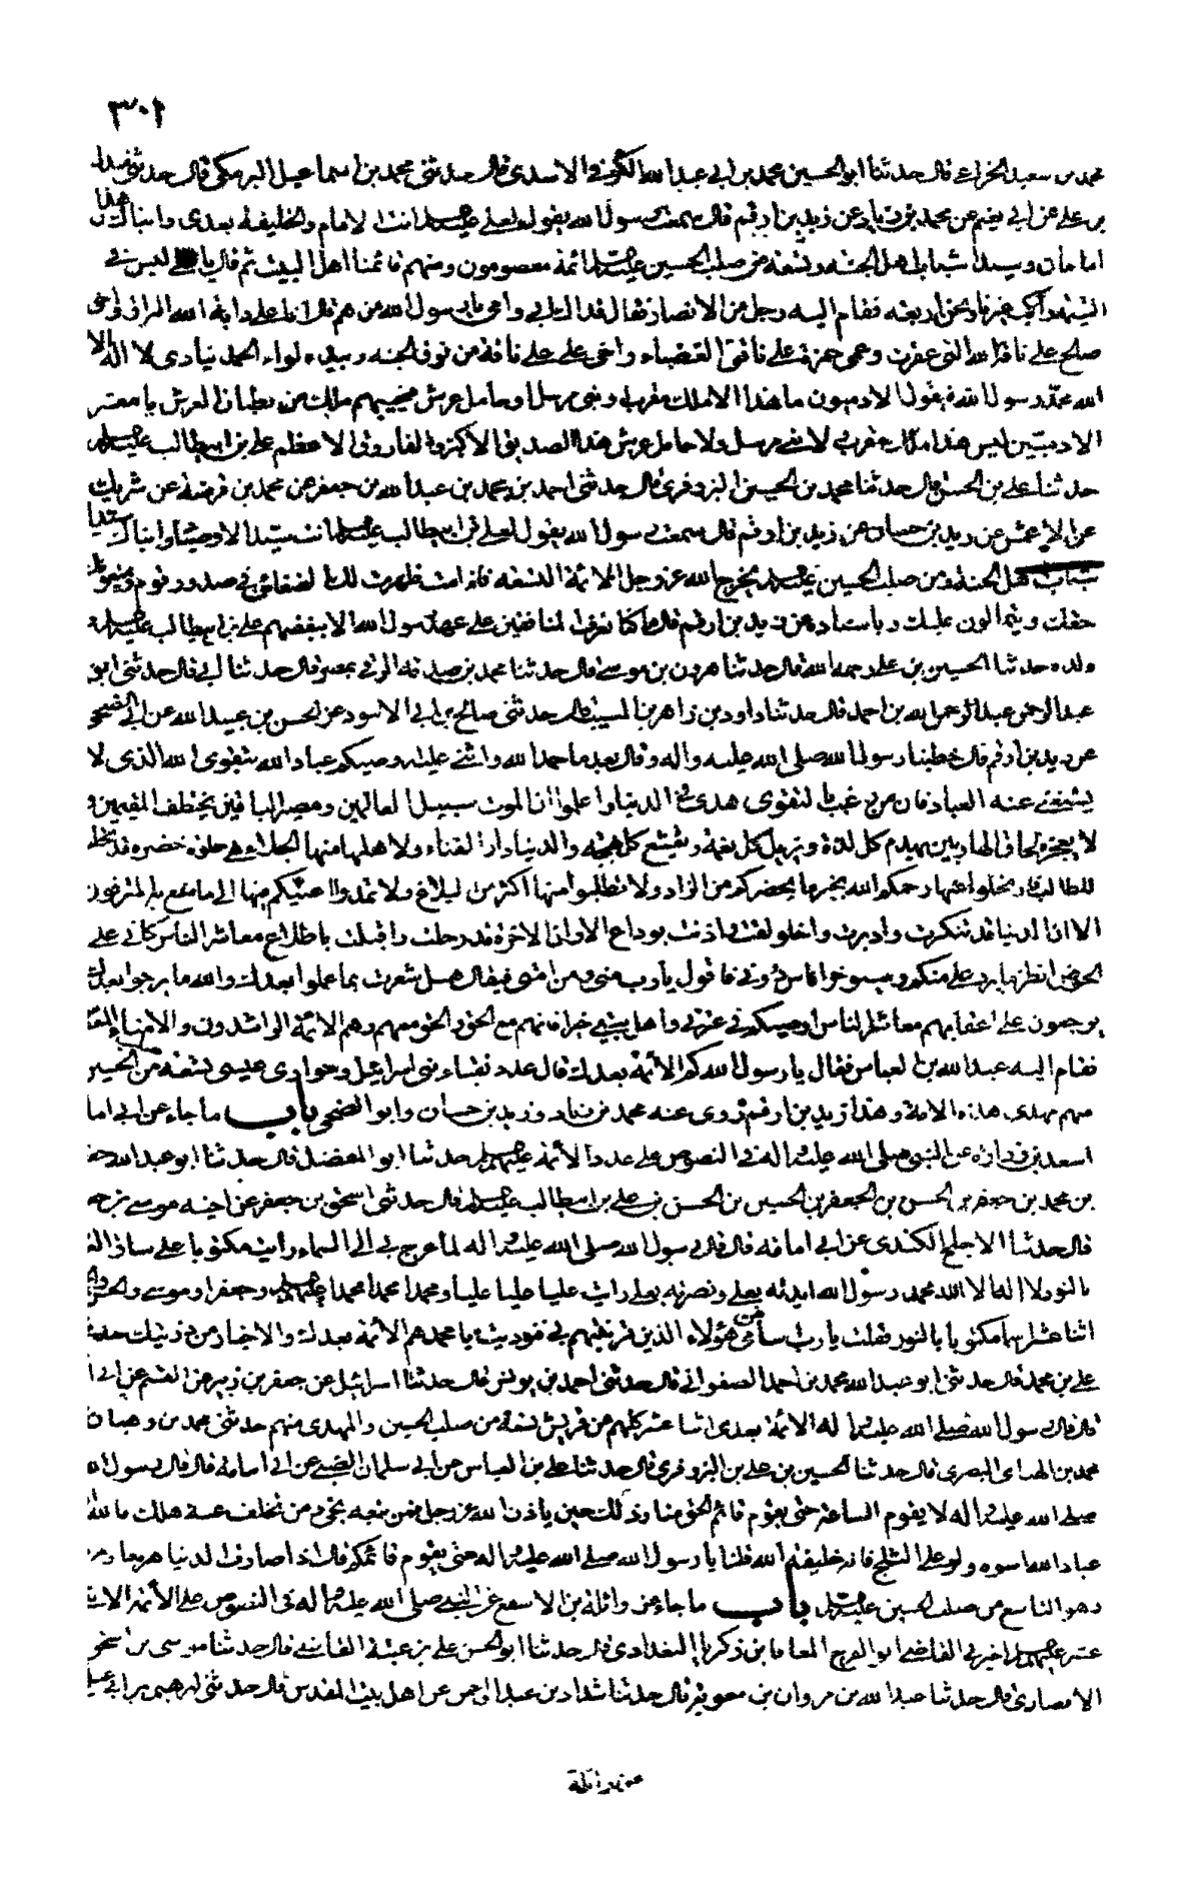 ٣٠٢
محمد بن سعيد الخزاعي قال حدثنا ابو الحسين محمد بن ابي عبد الله الكوفي الاسدي قال حدثني محمد بن اسماعيل البرمكي قال حدثني
بن علي عن ابي نعيم عن محمد بن زياد عن زيد بن ارقم قال سمعت رسول الله يقول لعلي عليه السلام انت الامام والخليفة بعدي وابناك هذان
امامان وسيدا شباب اهل الجنة وتسعة من صلب الحسين عليه السلام ائمة معصومون ومنهم قائمنا اهل البيت ثم قال يا علي ليس في
القيمة راكب غيرنا ونحن اربعة فقام اليه رجل من الانصار فقال فداك ابي وامي يا رسول الله من هم قال انا على دابة الله البراق واخي
صالح على ناقة الله التي عقرت وعمي حمزة على ناقتي العضباء واخي علي على ناقة من نوق الجنة وبيده لواء الحمد ينادي لا اله الا
الله محمد رسول الله فيقول الادميون ما هذا الا ملك مقرب او نبي مرسل او حامل عرش فيجيبهم ملك من بطنان العرش يا معشر
الادميين ليس هذا ملك مقرب ولا نبي مرسل ولا حامل عرش هذا الصديق الاكبر والفاروق الاعظم علي بن ابيطالب عليه السلام
حدثنا علي بن الحسن قال حدثنا محمد بن الحسين البزوفري قال حدثني احمد بن محمد بن عبد الله بن جعفر عن محمد بن قرضة عن شريك
عن الاعمش عن زيد بن حسان عن زيد بن ارقم قال سمعت رسول الله يقول لعلي بن ابيطالب عليه السلام انت سيد الاوصياء وابناك سيدا
شباب اهل الجنة ومن صلب الحسين عليه السلام يخرج الله عز وجل الائمة التسعة فاذا مت ظهرت لك الضغائن في صدور قوم ويمنعونك
حقك ويتمالون عليك وباسناده عن زيد بن ارقم قال ما كنا نعرف المنافقين على عهد رسول الله الا ببغضهم علي بن ابيطالب عليه السلام
ولده حدثنا الحسين بن علي رحمه الله قال حدثنا هرون بن موسى قال حدثنا محمد بن صدقة الرقي بمصر قال حدثنا ابي قال حدثني ابو
عبد الرحمن عبد الله بن احمد قال حدثنا داود بن زاهر بن المسيب قال حدثني صالح بن ابي الاسود عن الحسن بن عبيد الله عن ابي الضحى
عن زيد بن ارقم قال خطبنا رسول الله صلى الله عليه واله وقال بعد ما حمد الله واثنى عليه اوصيكم عباد الله بتقوى الله الذي لا
يستغنى عنه العباد فان من رغب بالتقوى هدى في الدنيا واعلموا ان الموت سبيل العالمين ومصير الباقين يختطف المقيمين و
لا يعجزه لحاق الهاربين يهدم كل لذة ويزيل كل نعمة ويقشع كل بهجة والدنيا دار الفناء ولاهلها منها الجلاء وهي حلوة خضرة قد عجلت
للطالب فارتحلوا عنها رحمكم الله بخير ما يحضركم من الزاد ولا تطلبوا منها اكثر من البلاغ ولا تمدوا اعينكم منها الى ما متع به المترفون
الا ان الدنيا قد تنكرت وادبرت واخلولقت واذنت بوداع الا وان الاخرة قد رحلت واقبلت باطلاع معاشر الناس كاني على
الحوض انظر ما يرد علي منكم وسيؤخر اناس دوني فاقول يا رب مني ومن امتي فيقال هل شعرت بما عملوا بعدك والله ما برحوا بعدك
يرجعون على اعقابهم معاشر الناس اوصيكم في عترتي واهل بيتي خيرا فانهم مع الحق والحق معهم وهم الائمة الراشدون والامناء المعصومون
فقام اليه عبد الله بن العباس فقال يا رسول الله كم الائمة بعدك قال عدد نقباء بني اسرائيل وحواري عيسى تسعة من صلب الحسين
منهم مهدي هذه الامة وهذا زيد بن ارقم روى عنه محمد بن زياد وزيد بن حسان وابو الضحى باب ما جاء عن ابي اما
اسعد بن زرارة عن النبي صلى الله عليه واله في النصوص على عدد الائمة عليهم السلام حدثنا ابو المفضل قال حدثنا ابو عبد الله جعفر
بن محمد بن جعفر بن الحسن بن الجعفر بن الحسين بن الحسن بن علي بن ابيطالب عليه السلام قال حدثني اسحق بن جعفر عن اخيه موسى بن جعفر
قال حدثنا الاجلح الكندي عن ابي امامة قال قال رسول الله صلى الله عليه واله لما عرج بي الى السماء رايت مكتوبا على ساق العرش
بالنور لا اله الا الله محمد رسول الله ايدته بعلي ونصرته بعلي ورايت عليا عليا عليا ومحمدا محمدا محمدا عليهم السلام وجعفرا وموسى والحسن والحجة
اثنا عشر اسما مكتوبا بالنور فقلت يا رب اسامي من هؤلاء الذين قرنتهم بي فنوديت يا محمد هم الائمة بعدك والاخيار من ذريتك حدثنا
علي بن محمد قال حدثني ابو عبد الله محمد بن احمد الصفواني قال حدثني احمد بن يونس قال حدثنا اسرائيل عن جعفر بن زبير عن القسم عن ابي ا
قال قال رسول الله صلى الله عليه واله الائمة بعدي اثنا عشر كلهم من قريش تسعة من صلب الحسين والمهدي منهم حدثني محمد بن وهبان
محمد بن الهناي البصري قال حدثنا الحسين بن علي بن البزوفري قال حدثنا علي بن العباس عن ابي سلمان الضبي عن ابي امامة قال قال رسول الله
صلى الله عليه واله لا يقوم الساعة حتى يقوم قائم الحق منا وذلك حين ياذن الله عز وجل فمن تبعه نجى ومن تخلف عنه هلك فالله
عباد الله اتوه ولو على الثلج فانه خليفة الله قلنا يا رسول الله صلى الله عليه واله متى يقوم قائمكم قال اذا صارت الدنيا هرجا ومرجا
وهو التاسع من صلب الحسين عليه السلام باب ما جاء عن واثلة بن الاسقع عن النبي صلى الله عليه واله في النصوص على الائمة الاثنا
عشر عليهم السلام اخبرني القاضي ابو الفرج المعافا بن زكريا البغدادي قال حدثنا ابو الحسن علي بن عتبة القاضي قال حدثنا موسى بن اسحق
الانصاري قال حدثنا عبد الله بن مروان بن معوية قال حدثنا شداد بن عبد الرحمن عن اهل بيت المقدس قال حدثني ابرهيم بن ابي عبلة
عن واثلة